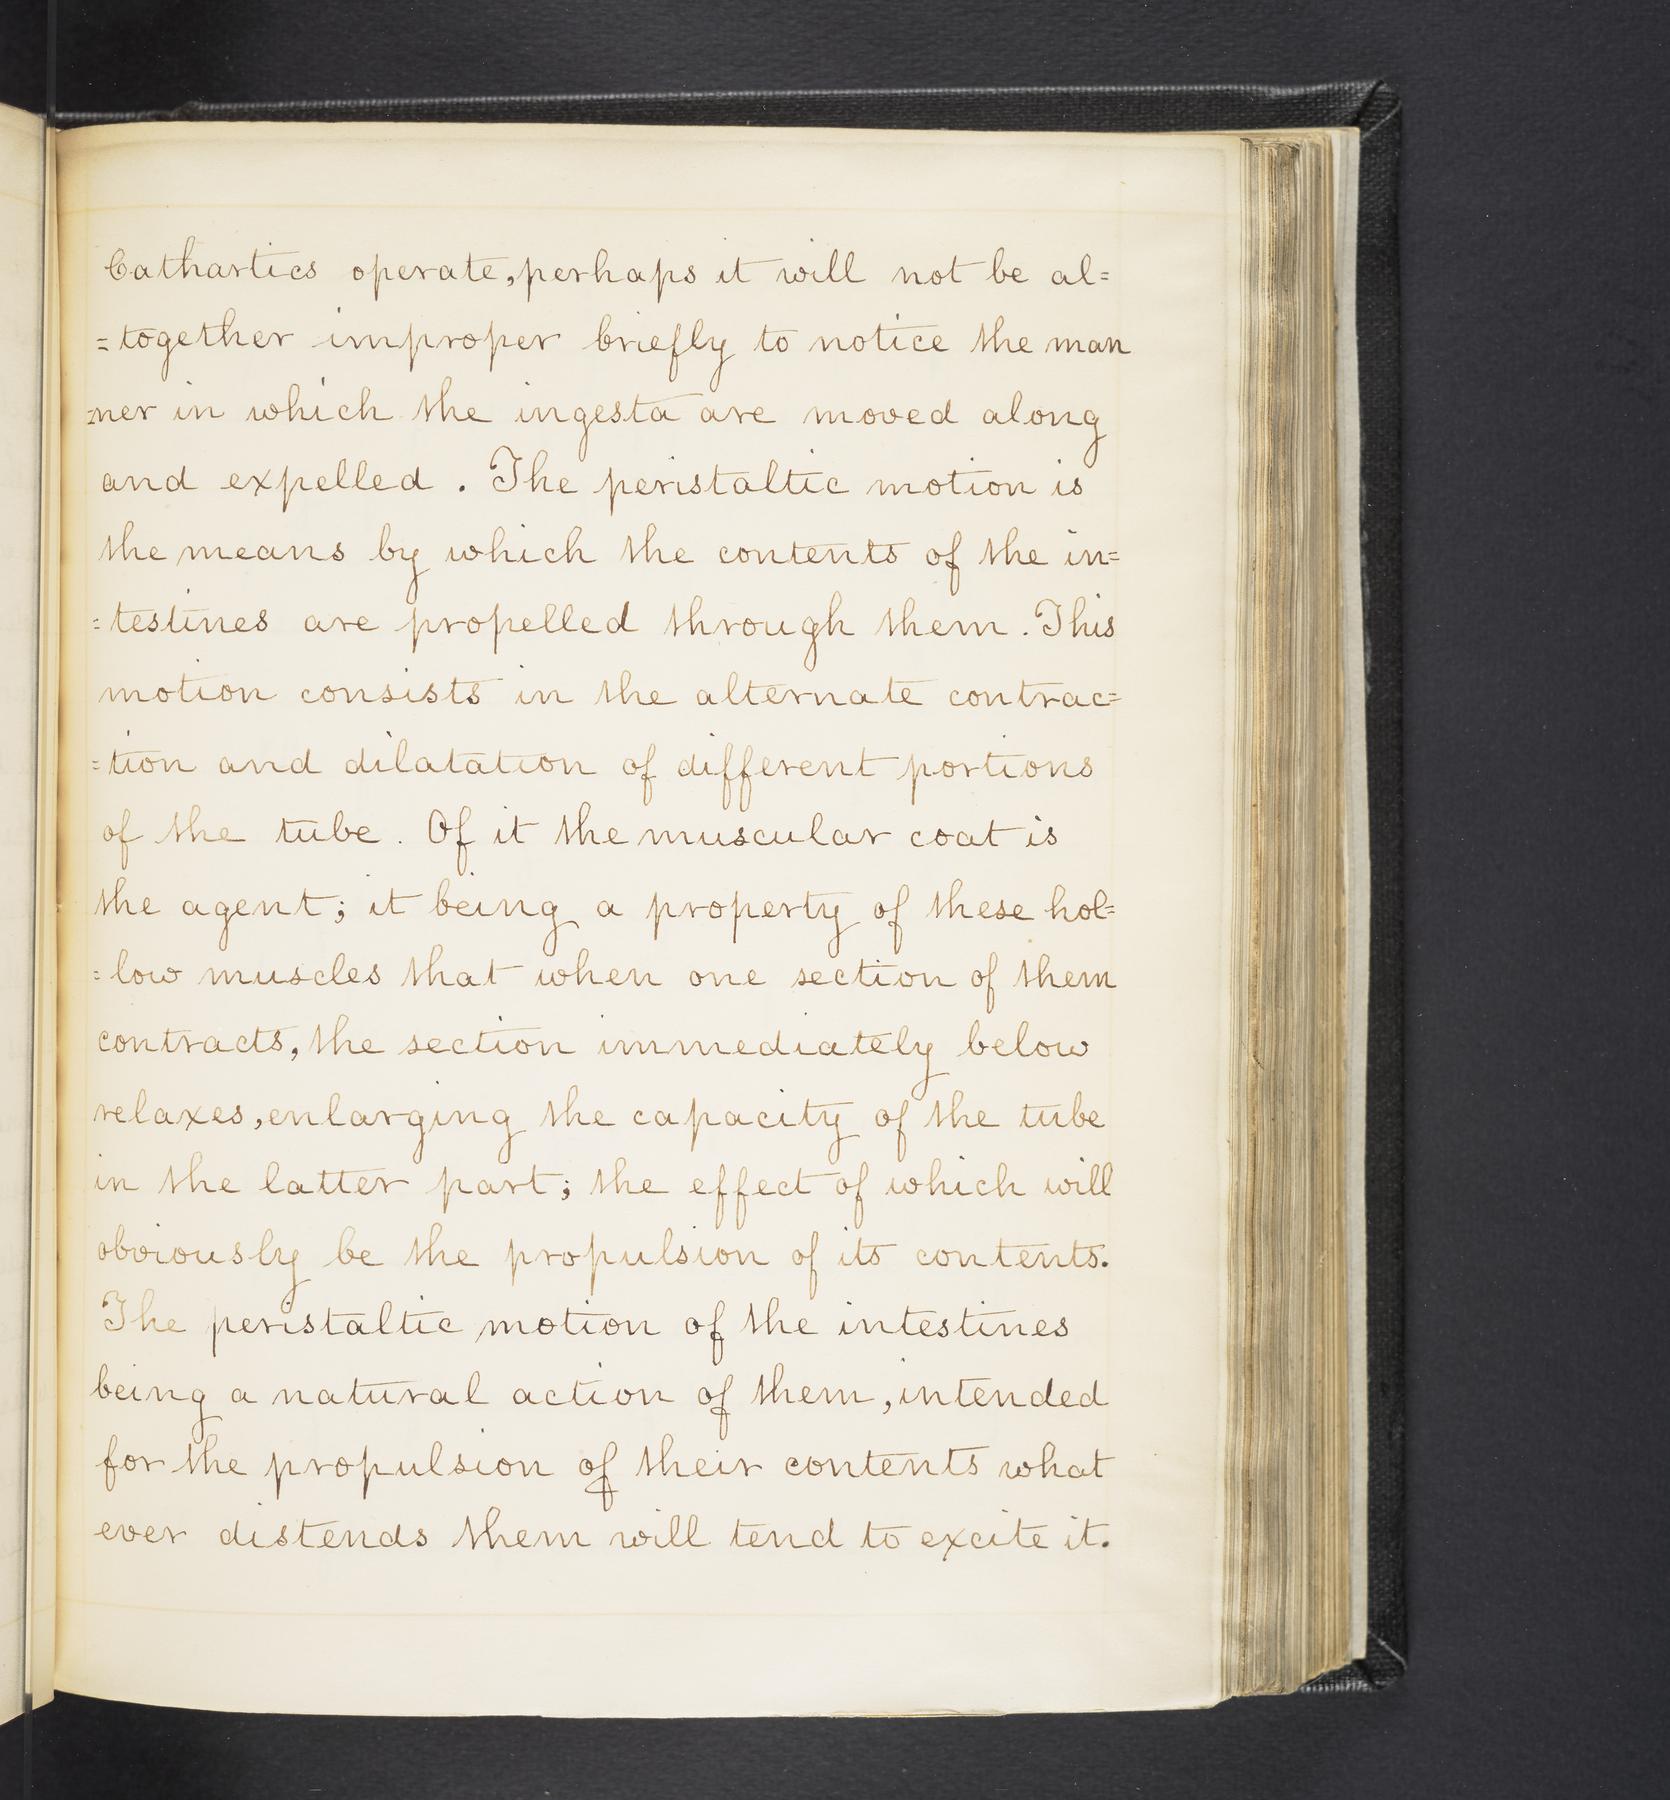 Cathartics operate, perhaps it will not be al=
=together improper briefly to notice the man
=ner in which the ingesta are moved along
and expelled. The peristaltic motion is
the means by which the contents of the in=
=testines are propelled through them. This
motion consists in the alternate contrac=
=tion and dilatation of different portions
of the tube. Of it the muscular coat is
the agent; it being a property of these hol=
=low muscles that when one section of them
contracts, the section immediately below
relaxes, enlarging the capacity of the tube
in the latter part; the effect of which will
obviously be the propulsion of its contents.
The peristaltic motion of the intestines
being a natural action of them, intended
for the propulsion of their contents what
ever distends them will tend to excite it.